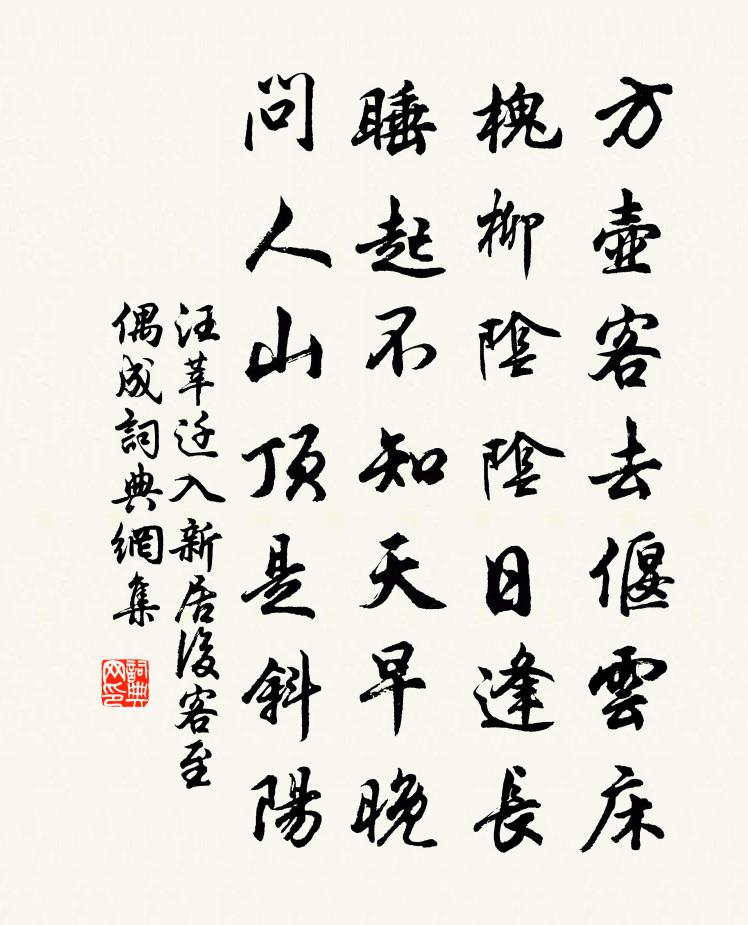 方壺客去偃雲床
槐柳陰陰日逢長
睡起不知天早晚
問人山頂是斜陽
汪莘迁入新居後客至
偶成詞典網集
詞典
网印